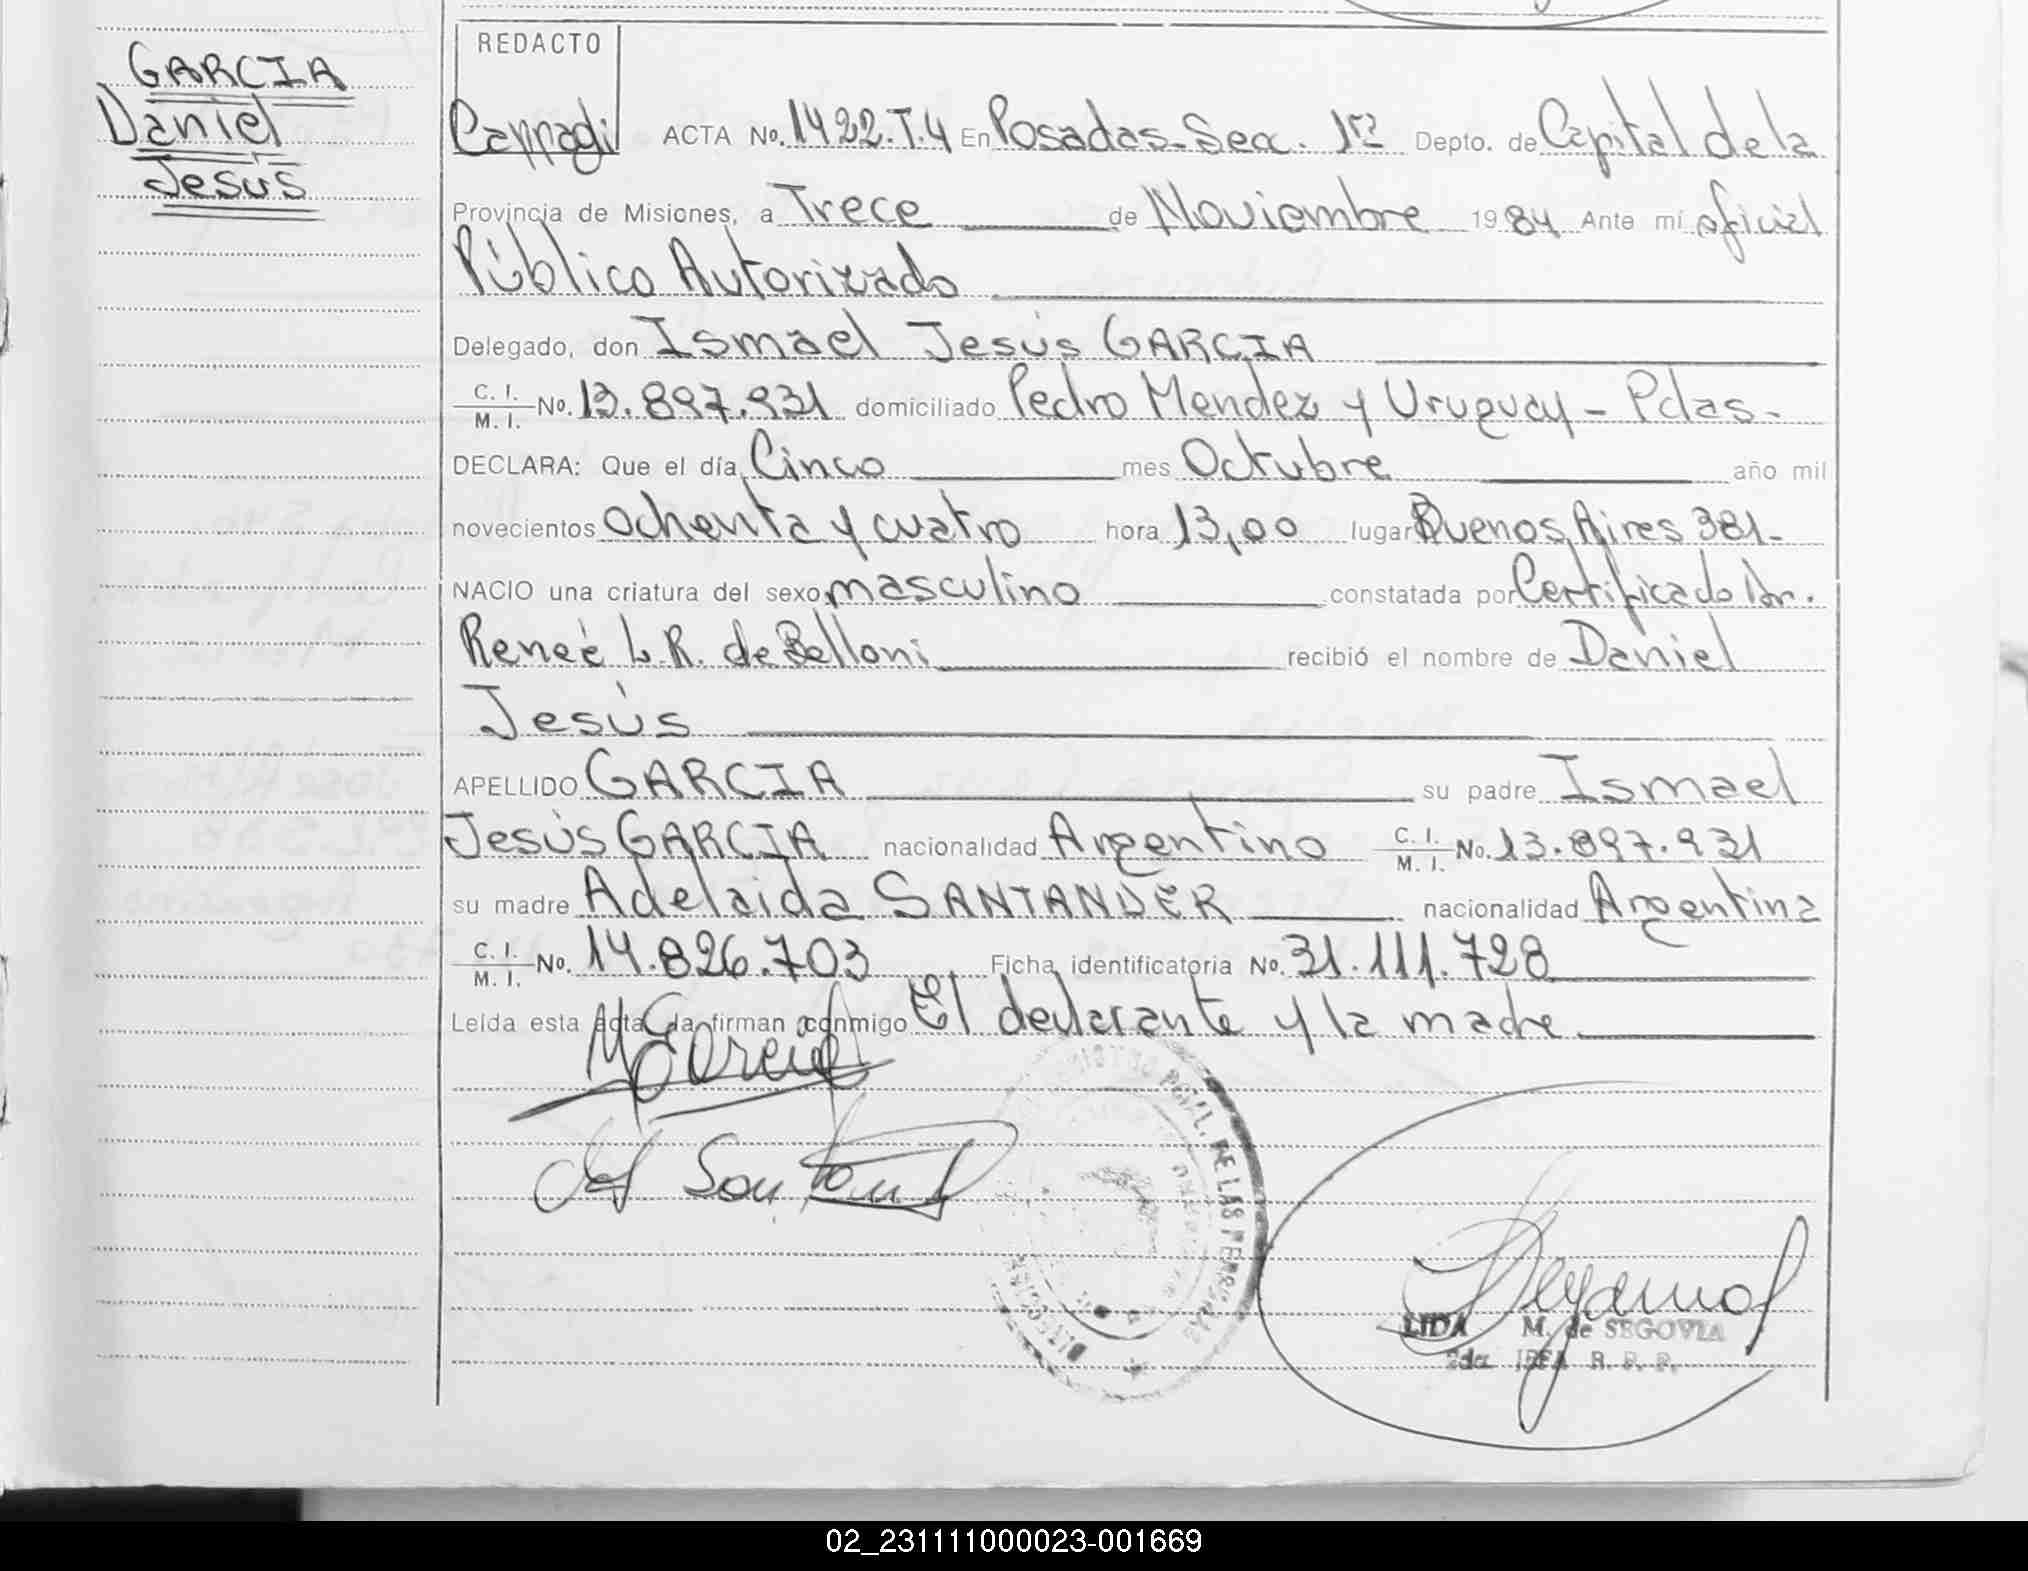 GARCIA
Daniel
Jesús
REDACTO
ACTA No. 1422.T.4 En Posadas-Secc. 1ra Depto. de Capital de la
Provincia de Misiones, a Trece de Noviembre 1984 Ante mí oficial
Público Autorizado
Delegado, don Ismael Jesús GARCIA
C. I. M. I. No. 13.897.931 domiciliado Pedro Mendez y Uruguay - Pdas-
DECLARA: Que el día Cinco mes Octubre año mil
novecientos ochenta y cuatro hora 13,00 lugar Buenos Aires 381-
NACIO una criatura del sexo masculino constatada por Certificado Dr.
Reneé L.R. de Belloni recibió el nombre de Daniel
Jesús
APELLIDO GARCIA su padre Ismael
Jesús GARCIA nacionalidad Argentino C. I. M. I. No. 13.897.931
su madre Adelaida SANTANDER nacionalidad Argentina
C. I. M. I. No. 14.826.703 Ficha identificatoria No. 31.111.728
Leída esta acta la firman conmigo El declarante y la madre
LIDA M. de SEGOVIA
2da. JEFA R. P. P.
02_231111000023-001669